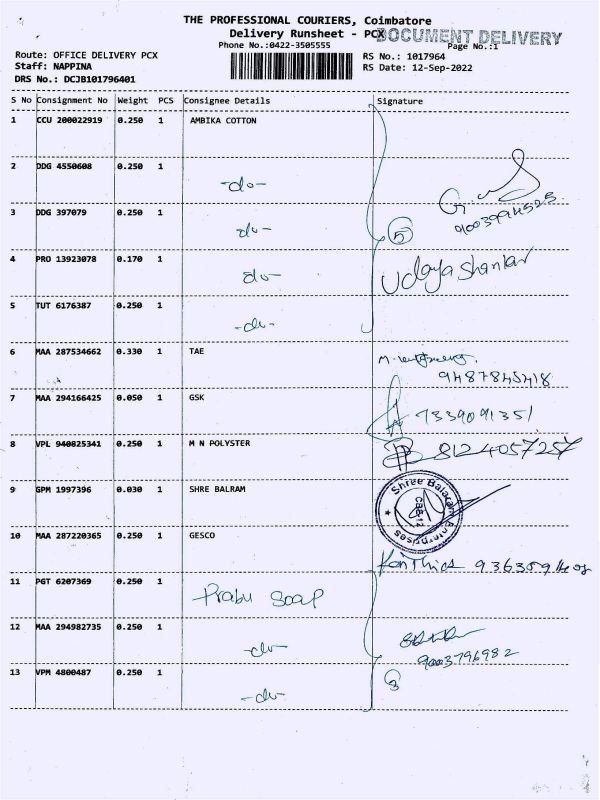 THE PROFESSIONAL COURIERS, Coimbatore
Delivery Runsheet - PCX
DOCUMENT DELIVERY
Phone No.:0422-3505555
Page No.:1
Route: OFFICE DELIVERY PCX
RS No.: 1017964
Staff: NAPPINA
RS Date: 12-Sep-2022
DRS No.: DCJB101796401
S No Consignment No Weight PCS Consignee Details Signature
1 CCU 200022919 0.250 1 AMBIKA COTTON
2 DDG 4550608 0.250 1 -do-
9003994525
3 DDG 397079 0.250 1 -do-
5
4 PRO 13923078 0.170 1 do-
Udaya Shankar
5 TUT 6176387 0.250 1 -do-
6 MAA 287534662 0.330 1 TAE
9487845418
7 MAA 294166425 0.050 1 GSK 7339091351
8 VPL 940825341 0.250 1 M N POLYSTER 8124057257
9 GPM 1997396 0.030 1 SHRE BALRAM
Shree Balaram Enterprises
10 MAA 287220365 0.250 1 GESCO
11 PGT 6207369 0.250 1 Prabu Soap
12 MAA 294982735 0.250 1 -do-
9003796982
13 VPM 4800487 0.250 1 -do-
3